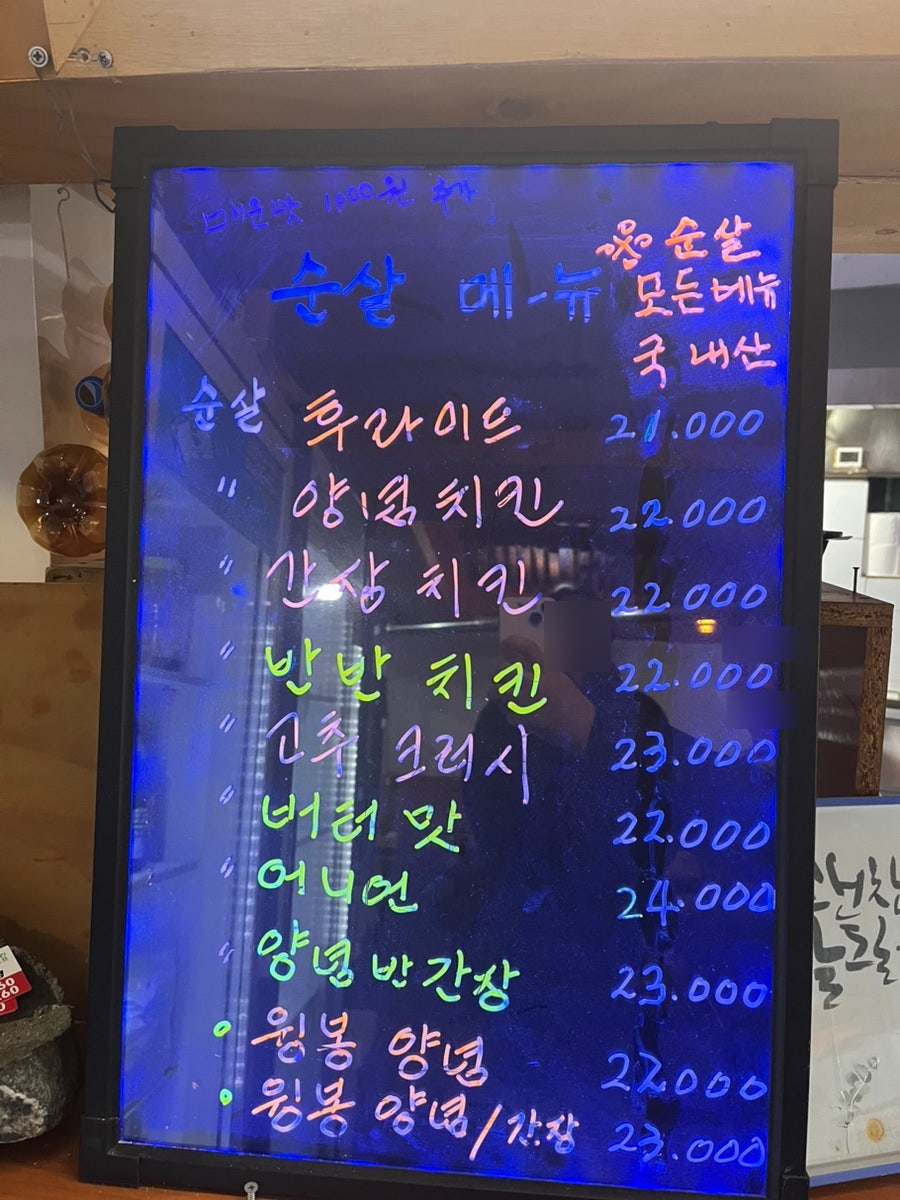 매운맛 1000원 추가
순살 메-뉴
※ 순살
모든메뉴
국내산
순살 후라이드 21.000
〃 양념치킨 22.000
〃 간장 치킨 22.000
〃 반반 치킨 22.000
〃 고추 크러시 23.000
〃 버터 맛 22.000
〃 어니언 24.000
〃 양념반간장 23.000
윙봉 양념 22.000
윙봉 양념/간장 23.000